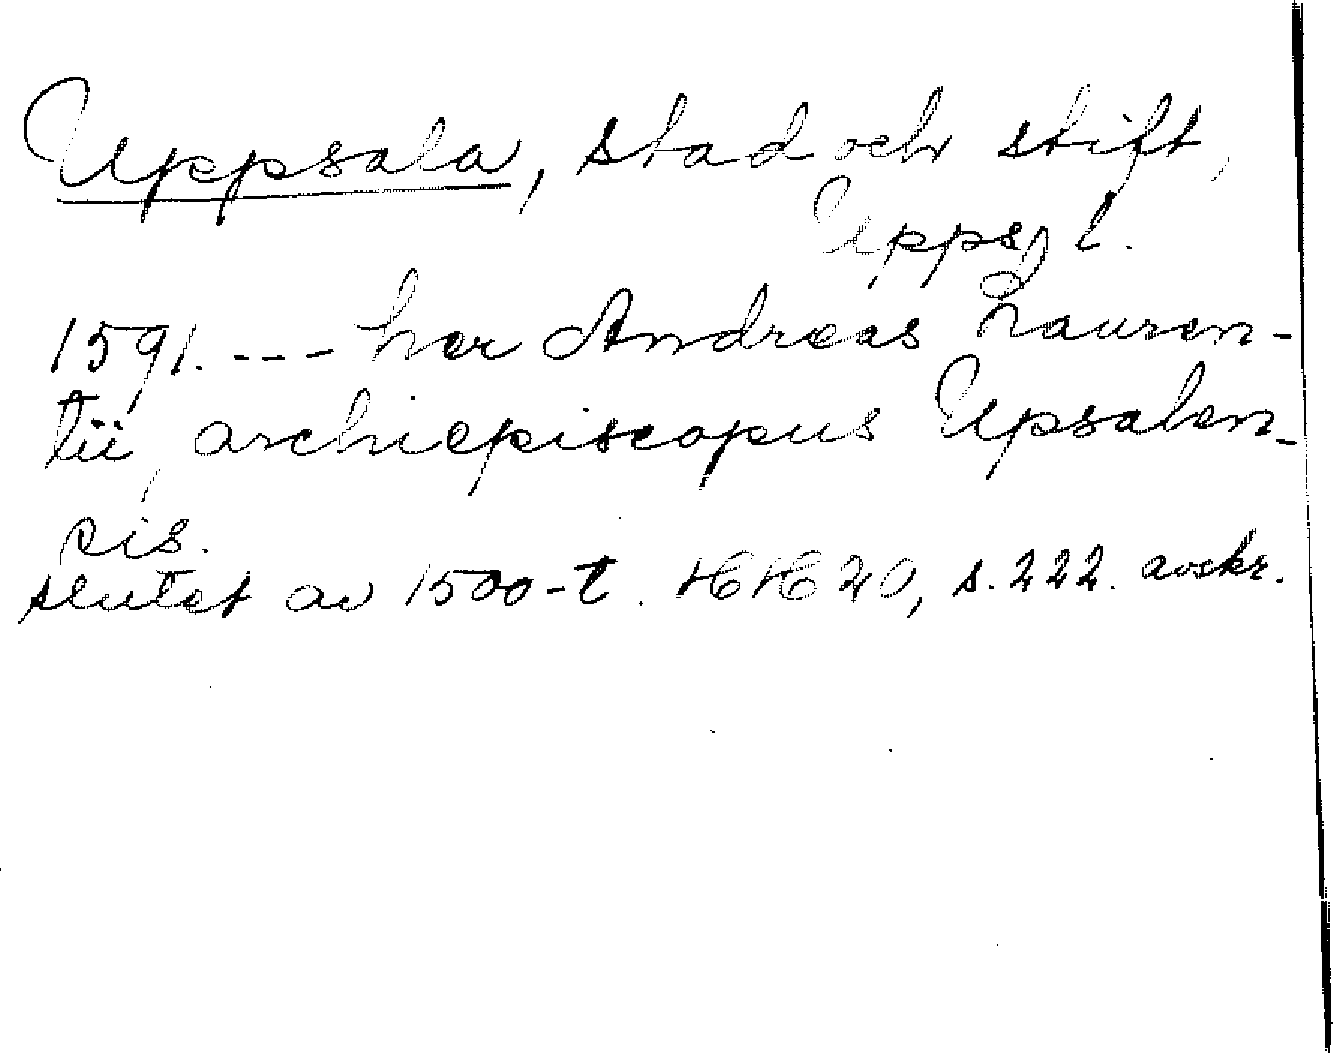 Uppsala, stad och stift,
Upps. l.
1591. --- her Andreas Lauren-
tii, archiepiscopus Upsalen-
sis.
slutet av 1500-t. HH 20, s. 222. avskr.